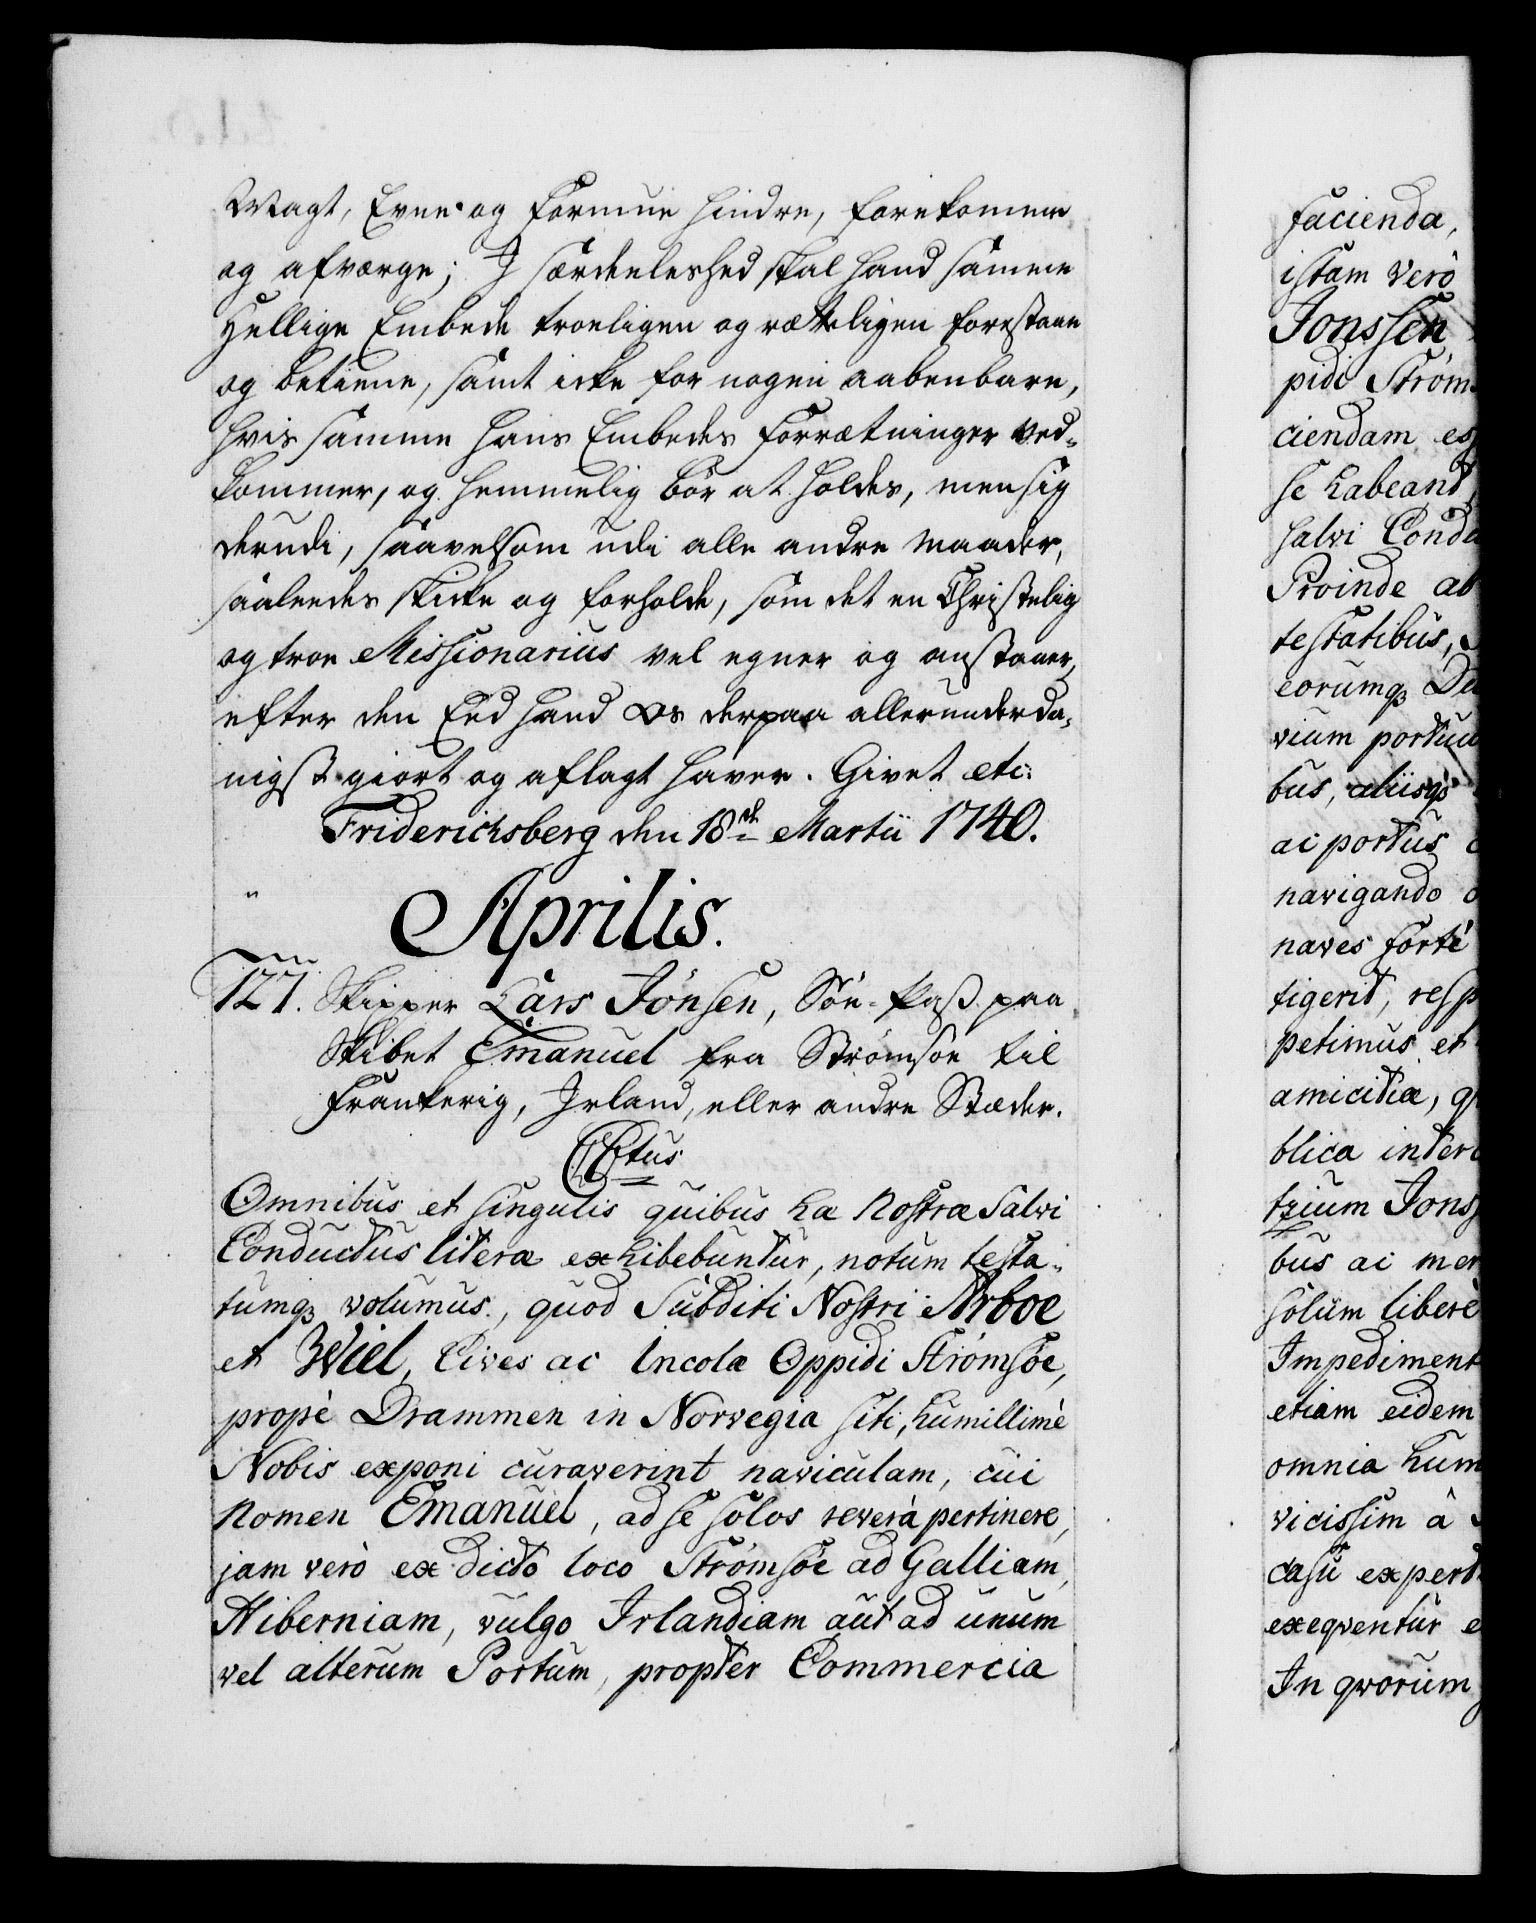 Magt, Evne og Formue hindre, forekomme
og afværge; J særdeeleshed skal hand samme
Hellige Embede troeligen og rætteligen forestaae
og betiene, samt icke for nogen aabenbare,
hvis samme hans Embedes Forrætninger ved-
kommer, og hemmelig bør at holdes, men sig
derudi, saavelsom udi alle andre maader,
saaleedes skicke og forholde, som det en Christelig
og troe Missionarius vel egner og anstaaer,
efter den Eed hand Os derpaa allerunderda-
nigst giort og aflagt haver. Givet etc:
Friderichsberg den 18de Martii 1740.
Aprilis.
127. Skipper Lars Jonsen, Söe-Pass paa
Skibet Emanuel fra Strømsöe til
Frankerig, Jrland, eller andre Stæder.
CCtus
Omnibus et singulis quibus hæ Nostræ Salvi
Conductus literæ exhibebuntur, notum testa-
tumq3 volumus, quod Subditi Nostri Arboe
et Wiel, Cives ac Incolæ Oppidi Strømsöe,
propè Drammen in Norvegia siti, humillimè
Nobis exponi curaverint naviculam, cui
Nomen Emanuel, ad se solos reverà pertinere,
jam verò ex dicto loco Strømsöe ad Galliam,
Hiberniam, vulgo Irlandiam aut ad unum
vel alterum Portum, propter Commercia
facienda,
istam verò
Jonssen
pidi Strøm
ciendam es
se habeant
salvi Condu
Proinde ab
testatibus,
eorumq3 Du
vium portuu
bus, aliisq3
ac portus
navigando
naves fortè
tigerit, resp
petimus et
amicitia, q
blica inter
trium Jons
bus ac mer
solum liberè
Impediment
etiam eidem
omnia hum
vicissim à
casu expert
exeqventur e
In qvorum